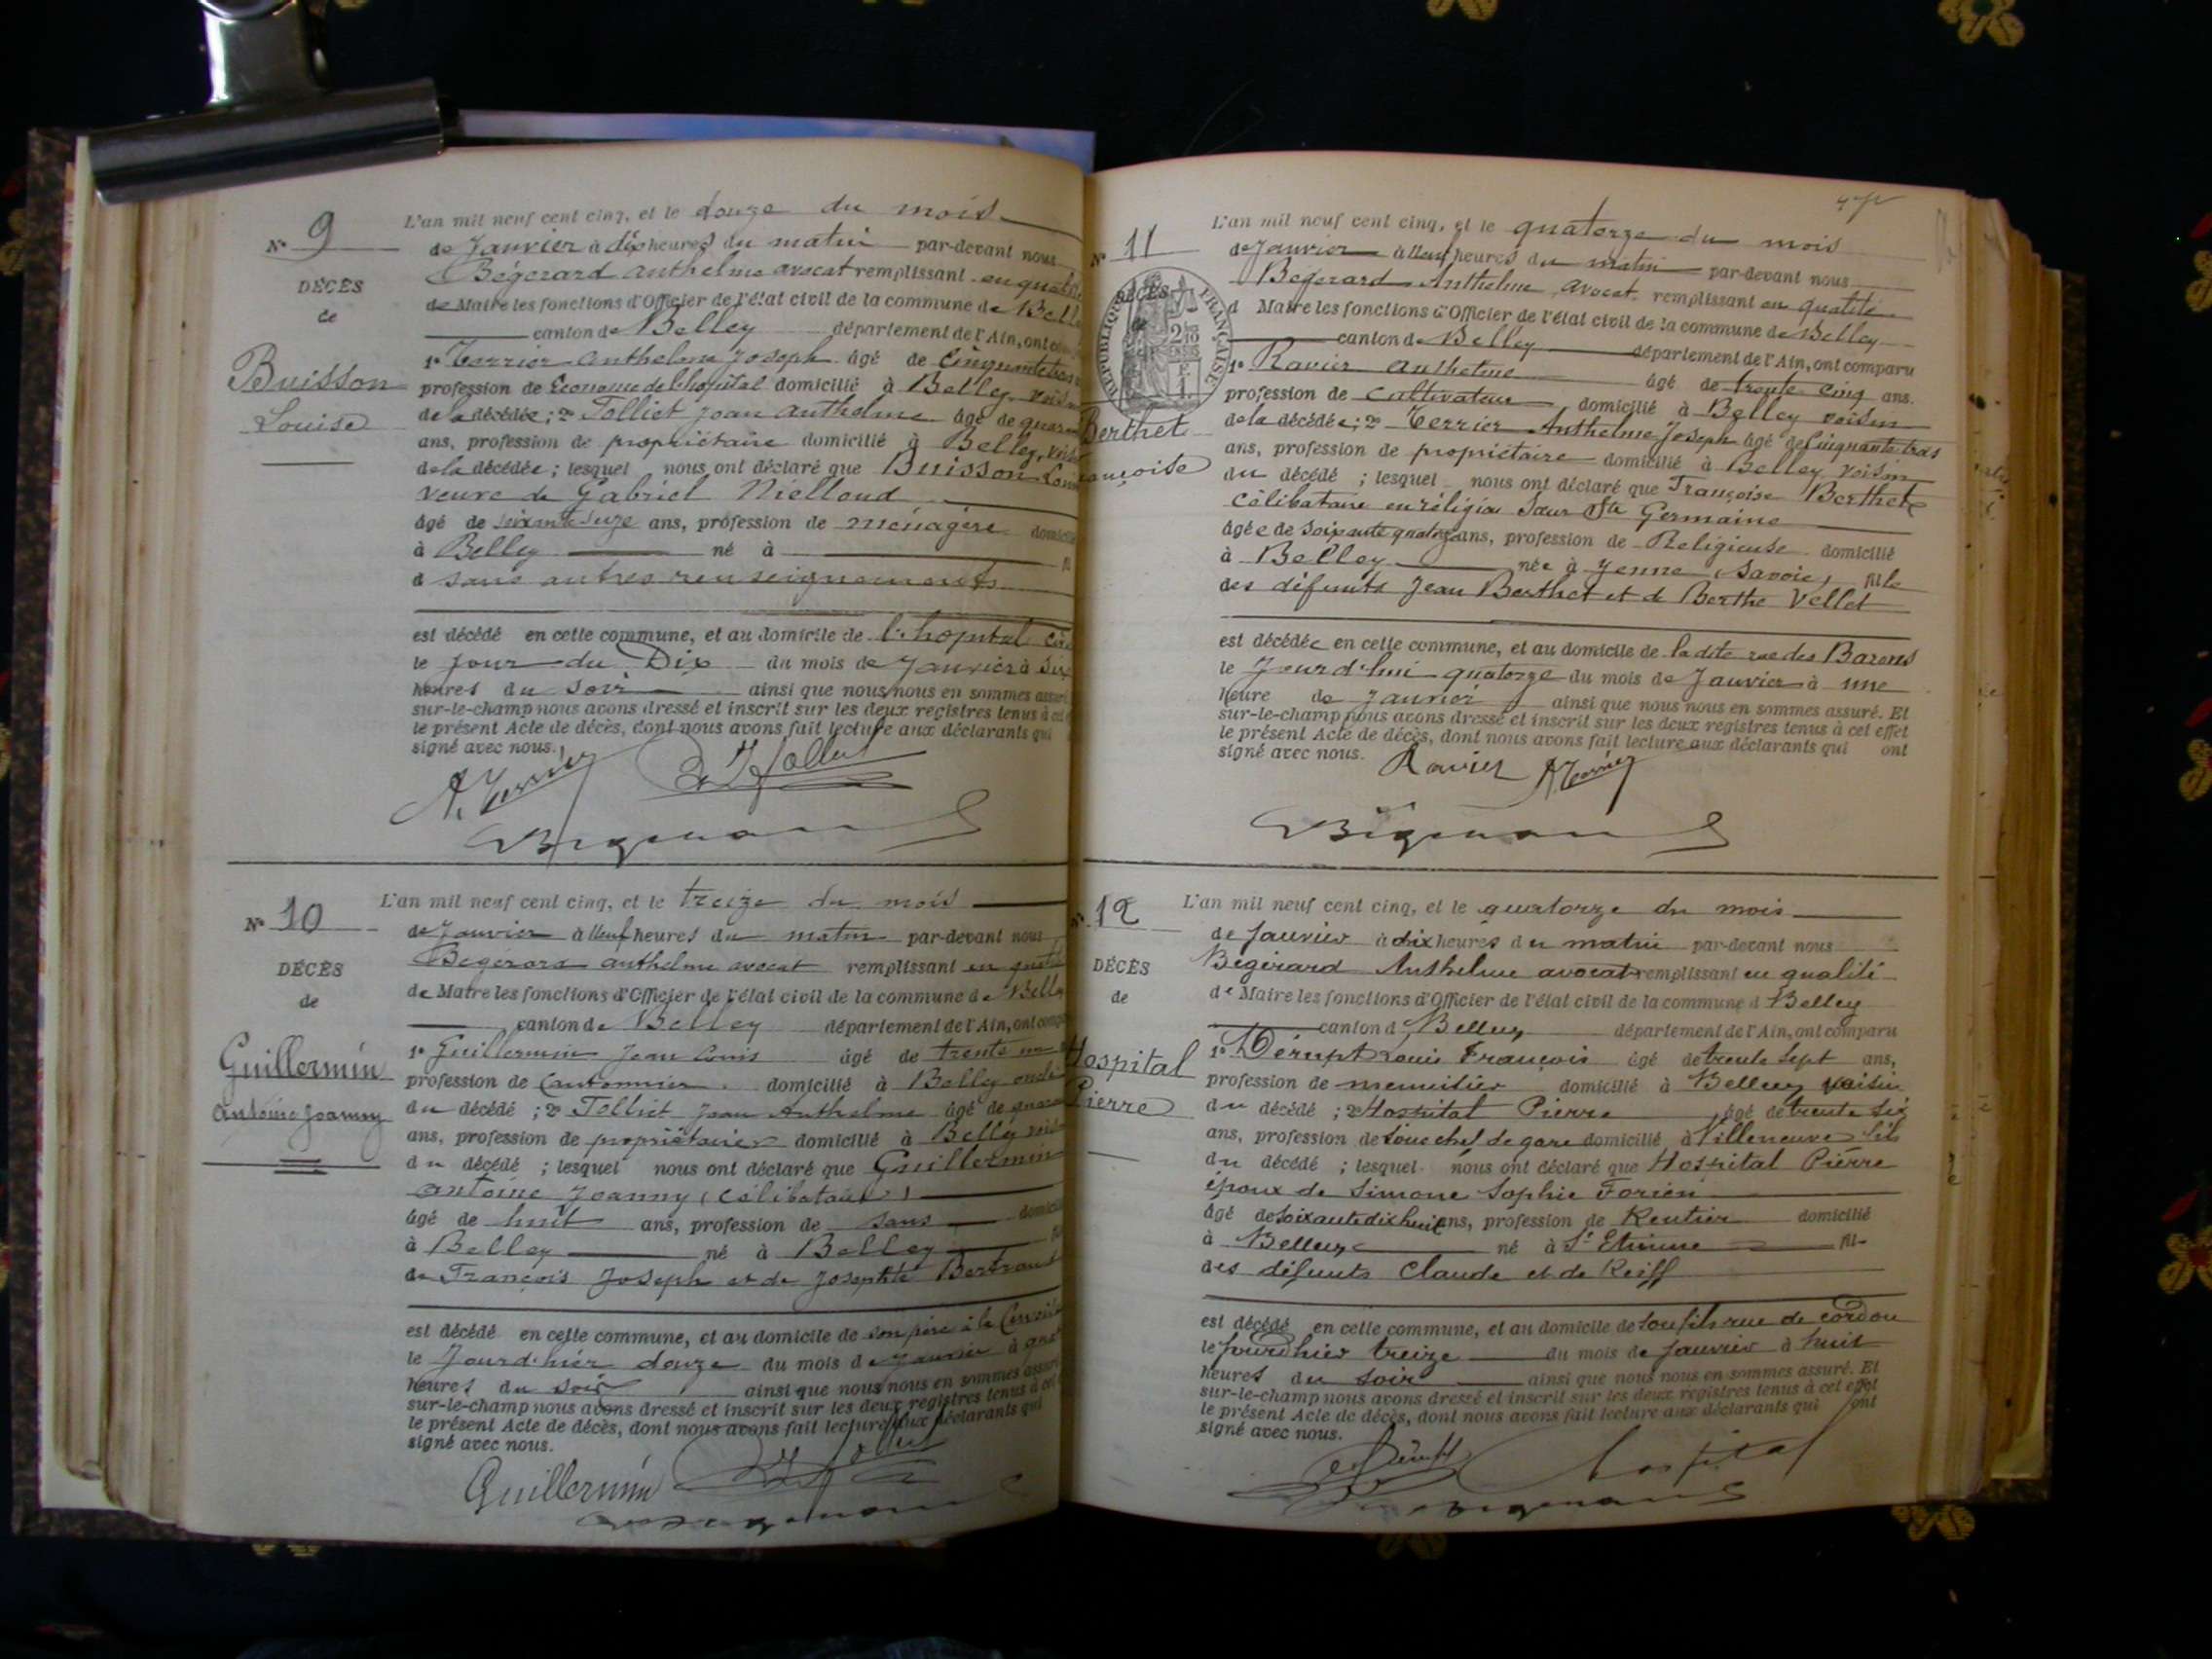 N° 9
DÉCÈS
de
Buisson
Louise
L'an mil neuf cent cinq, et le douze du mois
de Janvier à dix heures du matin par-devant nous
Bégerard Anthelme avocat remplissant en qualité
de Maire les fonctions d'Officier de l'état civil de la commune de Bell
canton de Belley département de l'Ain, ont
1° Terrier Anthelme Joseph âgé de Cinquante trois
profession de Econome de l'hopital domicilié à Belley, voisin
de la décédée; 2° Tolliet Jean Anthelme âgé de quaran
ans, profession de propriétaire domicilié à Belley, voisin
de la décédée; lesquel nous ont déclaré que Buisson Lou
veuve de Gabriel Nielloud
âgé de soixante seize ans, profession de ménagère domicilié
à Belley né à
d sans autres renseignements
est décédé en cette commune, et au domicile de l'hopital
le jour du Dix du mois de Janvier à six
heures du soir ainsi que nous nous en sommes assuré
sur-le-champ nous avons dressé et inscrit sur les deux registres tenus à cet
le présent Acte de décès, dont nous avons fait lecture aux déclarants qui
signé avec nous.
A. Terrier
N° 10
DÉCÈS
de
Guillermin
Antoine Joanny
L'an mil neuf cent cinq, et le treize du mois
de Janvier à neuf heures du matin par-devant nous
Bégerard Anthelme avocat remplissant en qualité
de Maire les fonctions d'Officier de l'état civil de la commune de Belley
canton de Belley département de l'Ain, ont compa
1° Guillermin Jean Louis âgé de trente
profession de Cantonnier domicilié à Belley oncle
du décédé; 2° Tolliet Jean Anthelme âgé de quaran
ans, profession de propriétaire domicilié à Belley voisin
du décédé; lesquel nous ont déclaré que Guillermin
Antoine Joanny (célibataire)
âgé de huit ans, profession de sans domicilié
à Belley né à Belley
de François Joseph et de Josephte Bertrand
est décédé en cette commune, et au domicile de son père à la
le Jour d'hier douze du mois de Janvier à
heures du soir ainsi que nous nous en sommes assuré
sur-le-champ nous avons dressé et inscrit sur les deux registres tenus à cet
le présent Acte de décès, dont nous avons fait lecture aux déclarants qui
signé avec nous.
Guillermin
N° 11
DÉCÈS
de
RÉPUBLIQUE FRANÇAISE
Berthet
ançoise
L'an mil neuf cent cinq, et le quatorze du mois
de Janvier à neuf heures du matin par-devant nous
Bégerard Anthelme avocat remplissant en qualité
d Maire les fonctions d'Officier de l'état civil de la commune de Belley
canton de Belley département de l'Ain, ont comparu
1° Ravier Anthelme âgé de trente cinq ans.
profession de Cultivateur domicilié à Belley voisin
de la décédée; 2° Terrier Anthelme Joseph âgé de Cinquante trois
ans, profession de propriétaire domicilié à Belley voisin
du décédé; lesquel nous ont déclaré que Françoise Berthet
célibataire en réligion Sœur Ste Germaine
âgée de soixante quatorze ans, profession de Religieuse domicilié
à Belley née à Yenne (Savoie) fille
des défunts Jean Berthet et d Berthe Vellet
est décédée en cette commune, et au domicile de la dite rue des Barons
le Jour d'hui quatorze du mois de Janvier à une
heure de Janvier ainsi que nous nous en sommes assuré. Et
sur-le-champ nous avons dressé et inscrit sur les deux registres tenus à cet effet
le présent Acte de décès, dont nous avons fait lecture aux déclarants qui ont
signé avec nous.
Ravier A. Terrier
N° 12
DÉCÈS
de
Hospital
Pierre
L'an mil neuf cent cinq, et le quatorze du mois
de Janvier à dix heures du matin par-devant nous
Bégérard Anthelme avocat remplissant en qualité
de Maire les fonctions d'Officier de l'état civil de la commune d Belley
canton d Belley département de l'Ain, ont comparu
1° Dérupt Louis François âgé de trente sept ans,
profession de menuisier domicilié à Belley voisin
du décédé; 2° Hospital Pierre âgé de trente six
ans, profession de sous chef de gare domicilié à Villeneuve fils
du décédé; lesquel nous ont déclaré que Hospital Pierre
époux de Simone Sophie Forien
âgé de soixante dix huit ans, profession de Rentier domicilié
à Belley né à St Etienne fils
des défunts Claude et de Reiff
est décédé en cette commune, et au domicile de son fils rue de cordon
le jour d'hier treize du mois de Janvier à huit
heures du soir ainsi que nous nous en sommes assuré. Et
sur-le-champ nous avons dressé et inscrit sur les deux registres tenus à cet effet
le présent Acte de décès, dont nous avons fait lecture aux déclarants qui ont
signé avec nous.
hospital